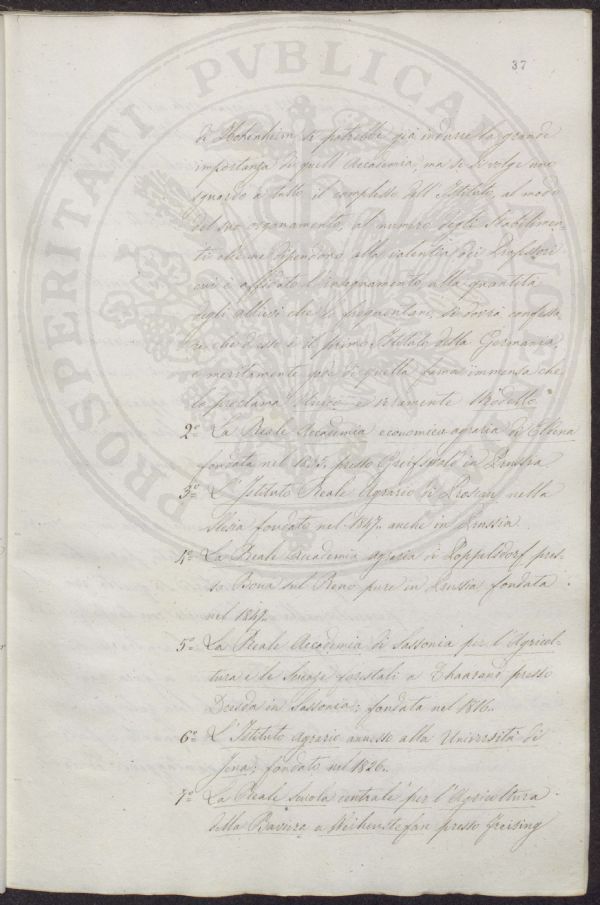 37
di Hohenheim si potrebbe già indurre la grande
importanza di quell'Accademia, ma se si volge uno
sguardo a tutto il complesso dell'Istituto, al modo
del suo organamento, al numero degli Stabilimen-
ti che ne dipendono alla valentia dei Professori
cui è affidato l'insegnamento alla quantità
degli allievi che lo frequentano, si dovrà confessa
re che desso è il primo Istituto della Germania,
e meritamente gode di quella fama immensa che
lo proclama Unico e veramente Modello
2.º La Reale Accademia economico agraria di Eldena
fondata nel 1835. presso Greifswald in Prussia.
3.º L'Istituto Reale Agrario di Proscau nella
Slesia fondato nel 1847. anche in Prussia.
4.º La Reale Accademia agraria di Poppelsdorf pres-
so Bona sul Reno pure in Prussia fondata
nel 1847.
5.º La Reale Accademia di Sassonia per l'Agricol-
tura e le Scienze forestali a Thaarand presso
Dresda in Sassonia: fondata nel 1816.
6.º L'Istituto Agrario annesso alla Università di
Jena: fondato nel 1826.
7.º La Reale Scuola centrale per l'Agricoltura
della Baviera a Weihenstefan presso Freising
PROSPERITATI PVBLICAE